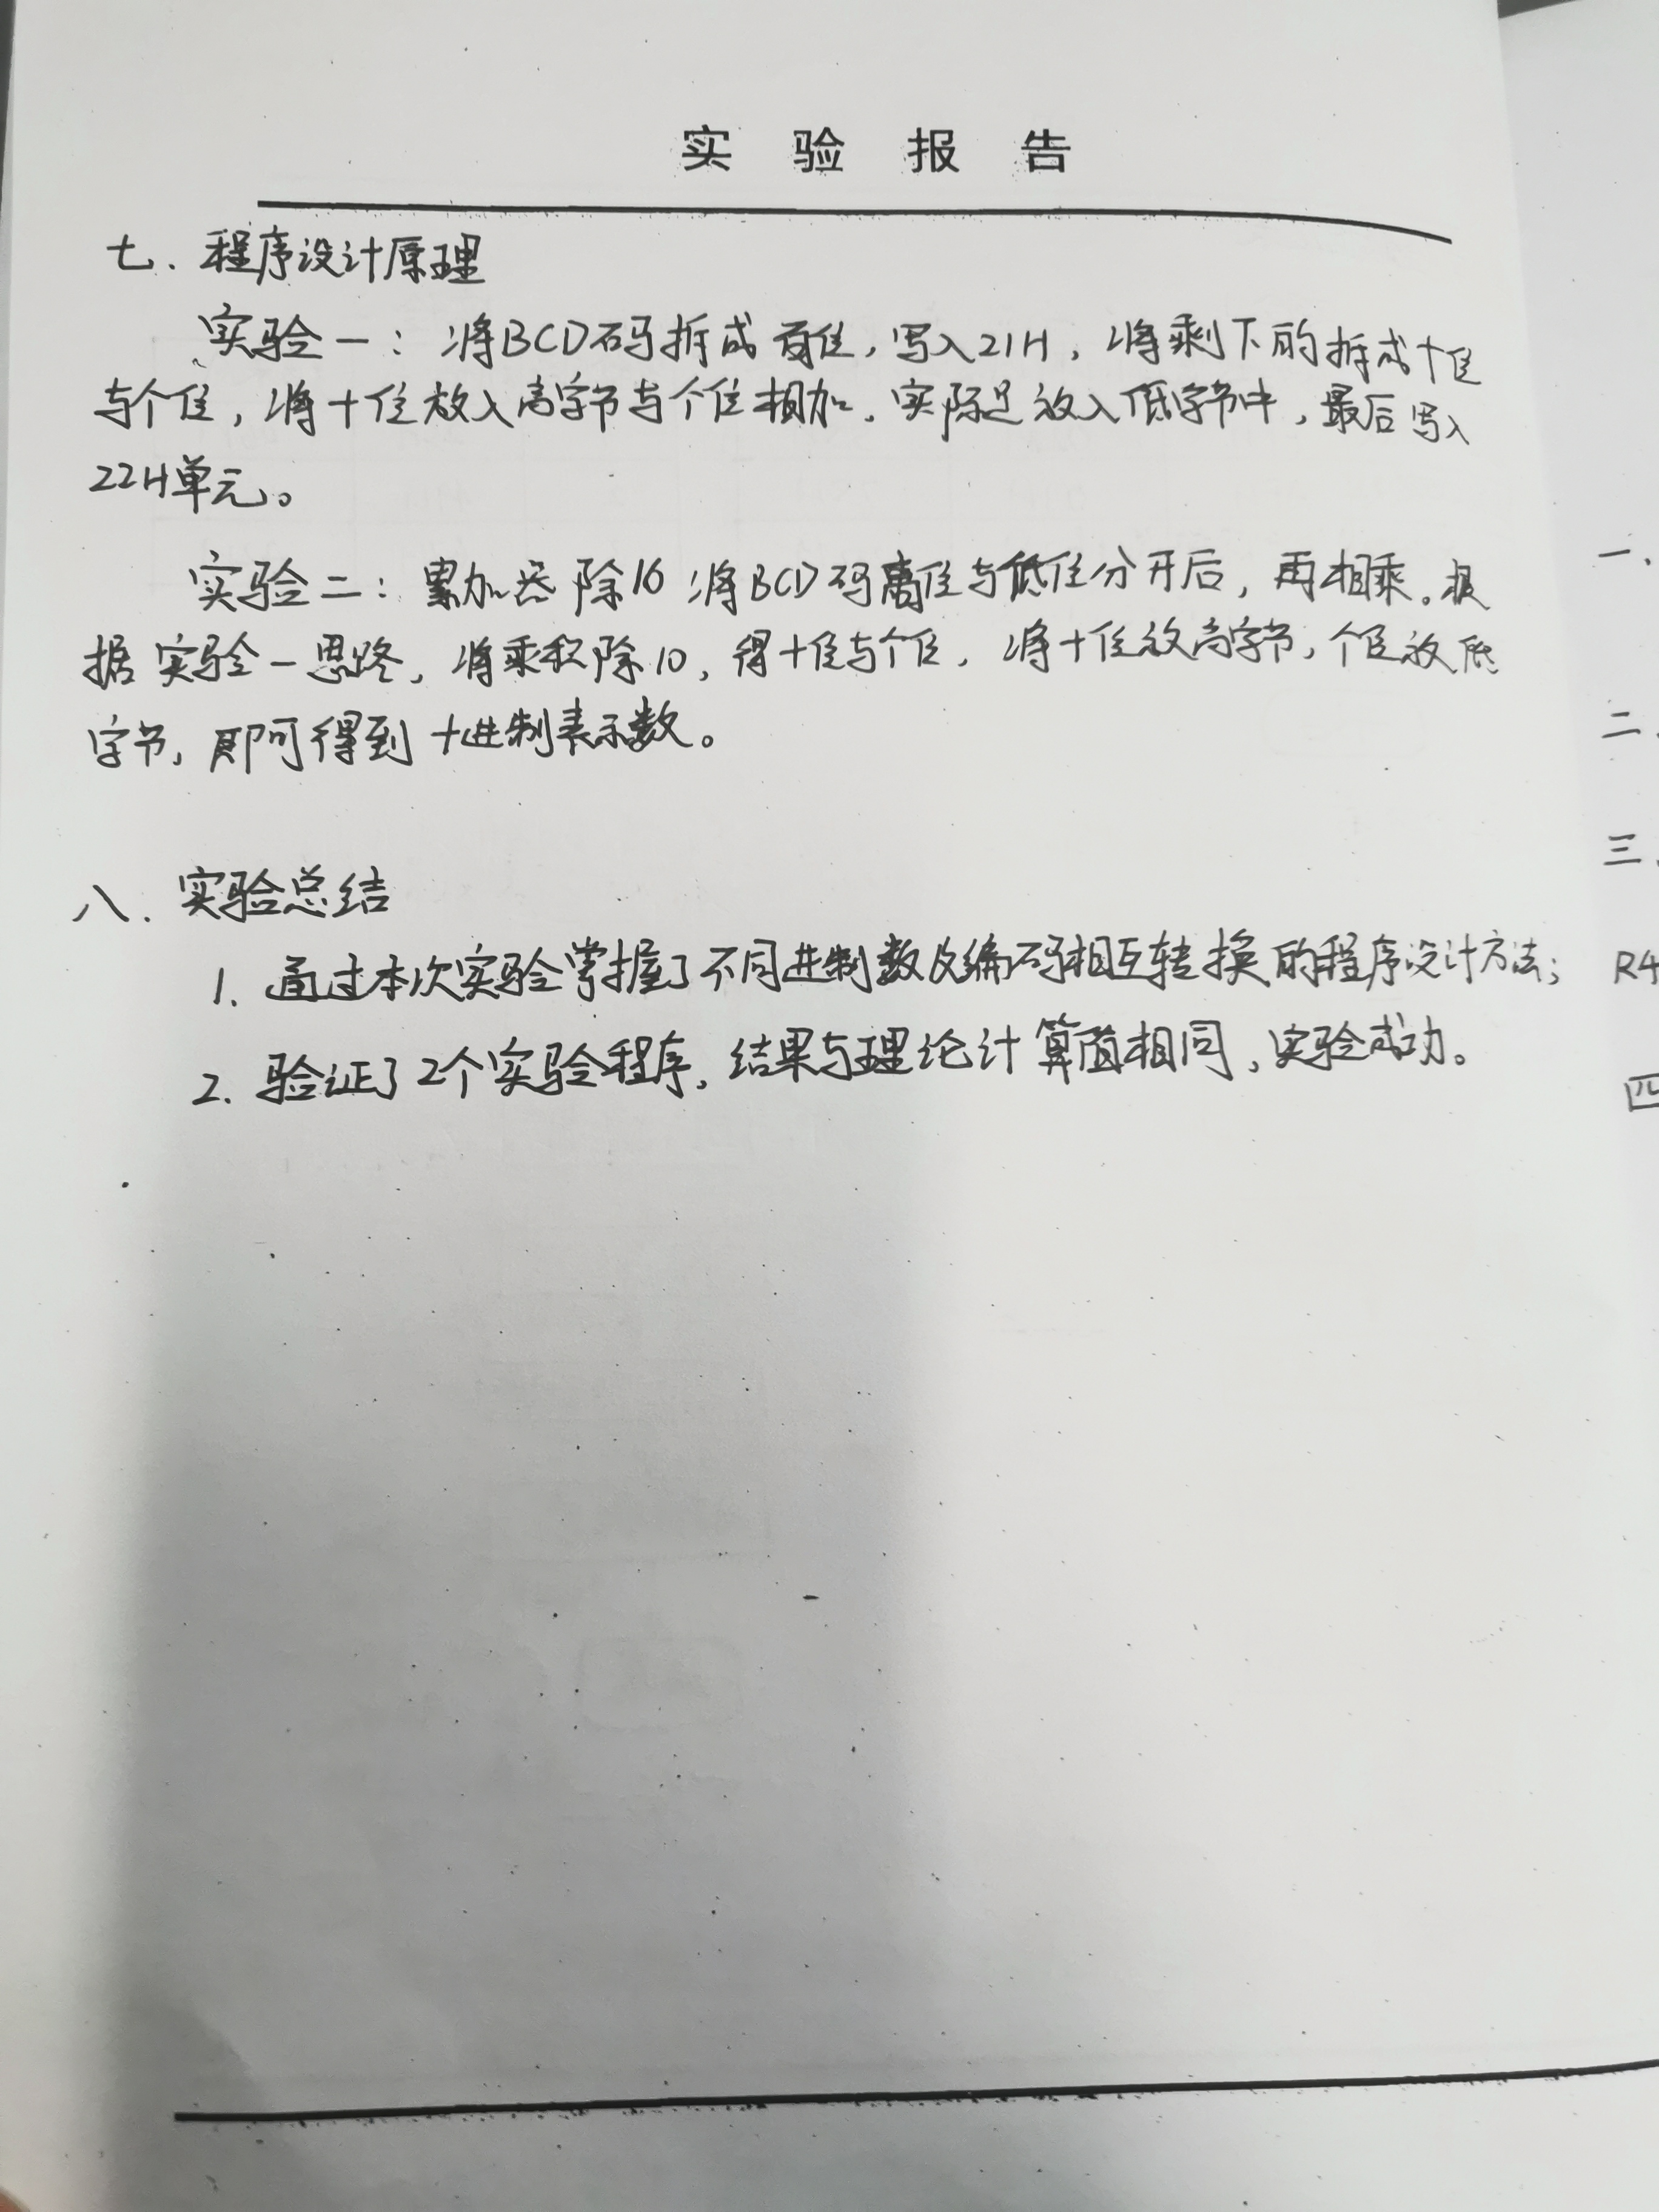 实验报告
七、程序设计原理
实验一：将BCD码拆成百位，写入21H，将剩下的拆成十位
与个位，将十位放入高字节与个位相加，实际是放入低字节中，最后写入
22H单元。
实验二：累加器除16将BCD码高位与低位分开后，再相乘。根
据实验一思路，将乘积除10，得十位与个位，将十位放高字节，个位放低
字节，即可得到十进制表示数。
八、实验总结
1. 通过本次实验掌握了不同进制数及编码相互转换的程序设计方法；
2. 验证了2个实验程序，结果与理论计算值相同，实验成功。
一、
二、
三、
R4
四